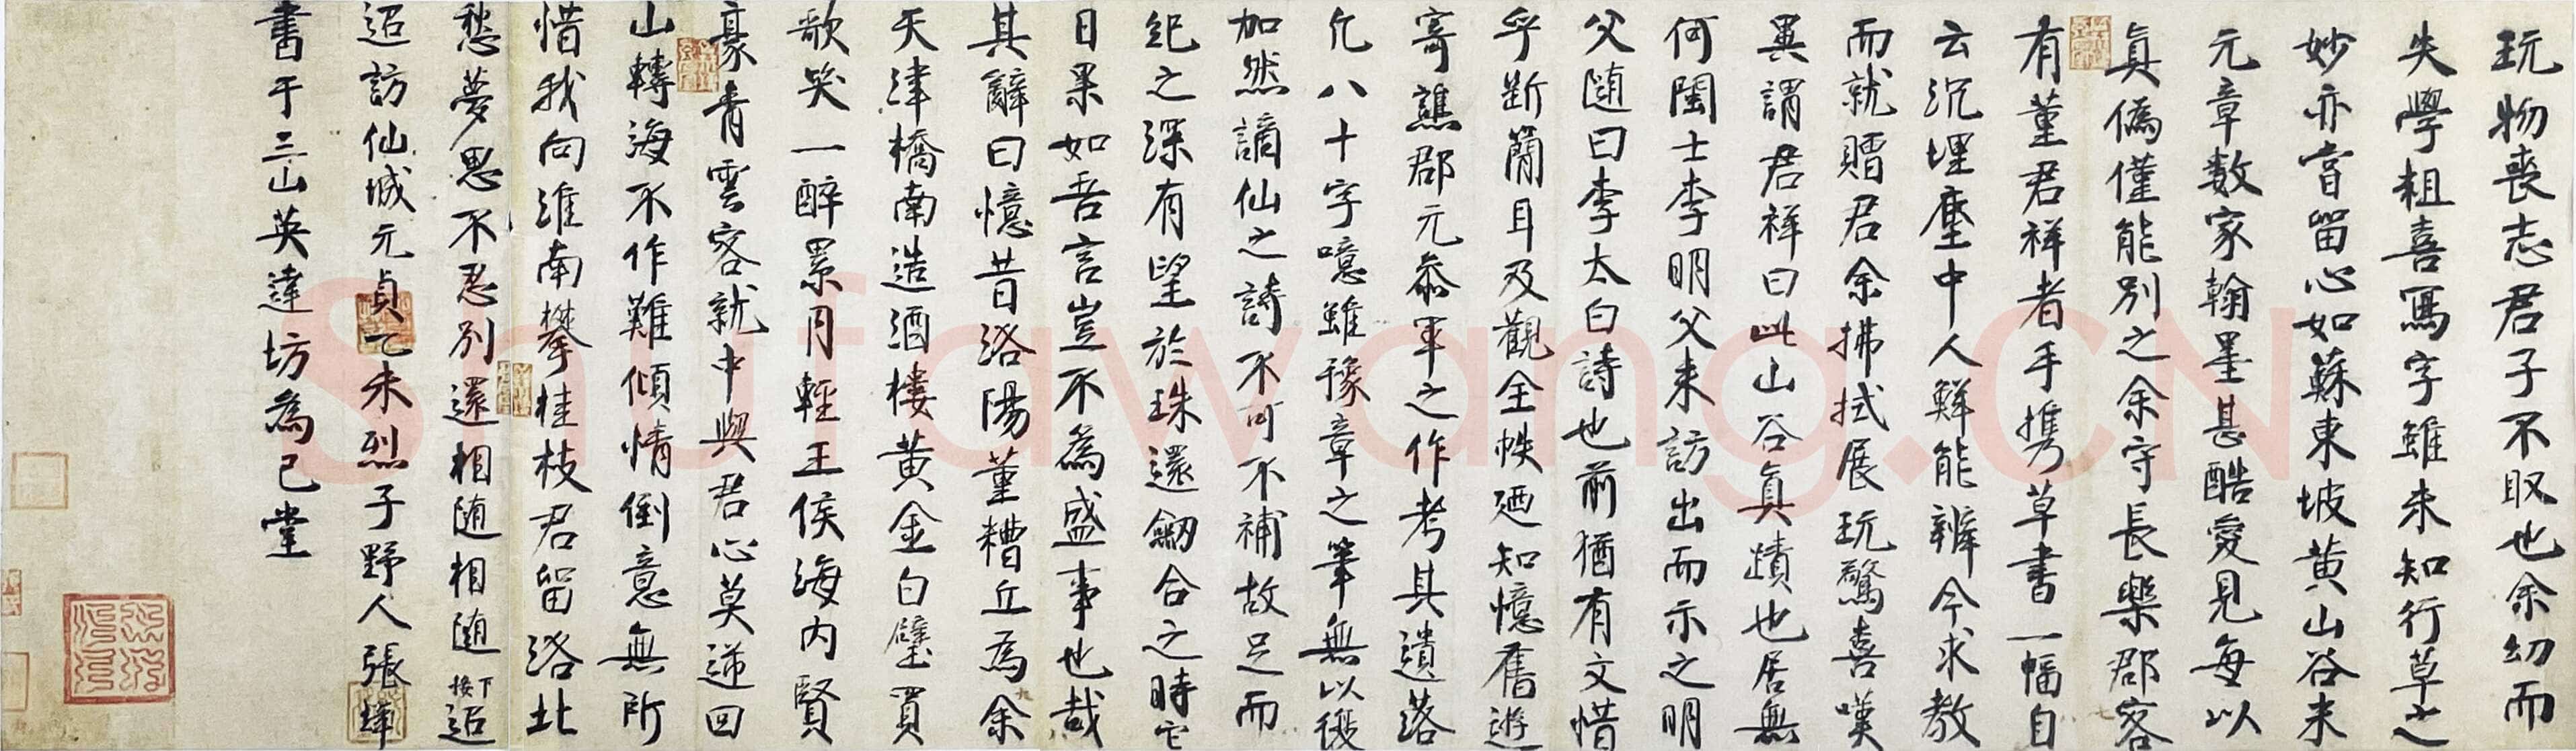 玩物喪志君子不取也余幼而
失學粗喜寫字雖未知行草之
妙亦嘗留心如蘇東坡黄山谷米
元章數家翰墨甚酷愛見每以
真僞僅能別之余守長樂郡客
有董君祥者手攜草書一幅自
云沉埋塵中人鮮能辨今求教
而就贈君余拂拭展玩驚喜嘆
異謂君祥曰此山谷真蹟也居無
何閩士李明父来訪出而示之明
父随曰李太白詩也前猶有文惜
乎断簡耳及觀全帙廼知憶舊遊
寄譙郡元叅軍之作考其遺落
凡八十字噫雖豫章之筆無以復
加然謫仙之詩不可不補故足而
紀之深有望於珠還劒合之時它
日果如吾言豈不為盛事也哉
其辭曰憶昔洛陽董糟丘為余
天津橋南造酒樓黄金白璧買
歌笑一醉累月輕王侯海内賢
豪青雲客就中與君心莫逆回
山轉海不作難傾情倒意無所
惜我向淮南攀桂枝君留洛北
愁夢思不忍別還相随相随接下迢
迢訪仙城元貞乙未烈子野人張鐸
書于三山英達坊為己堂
Shufawang.CN